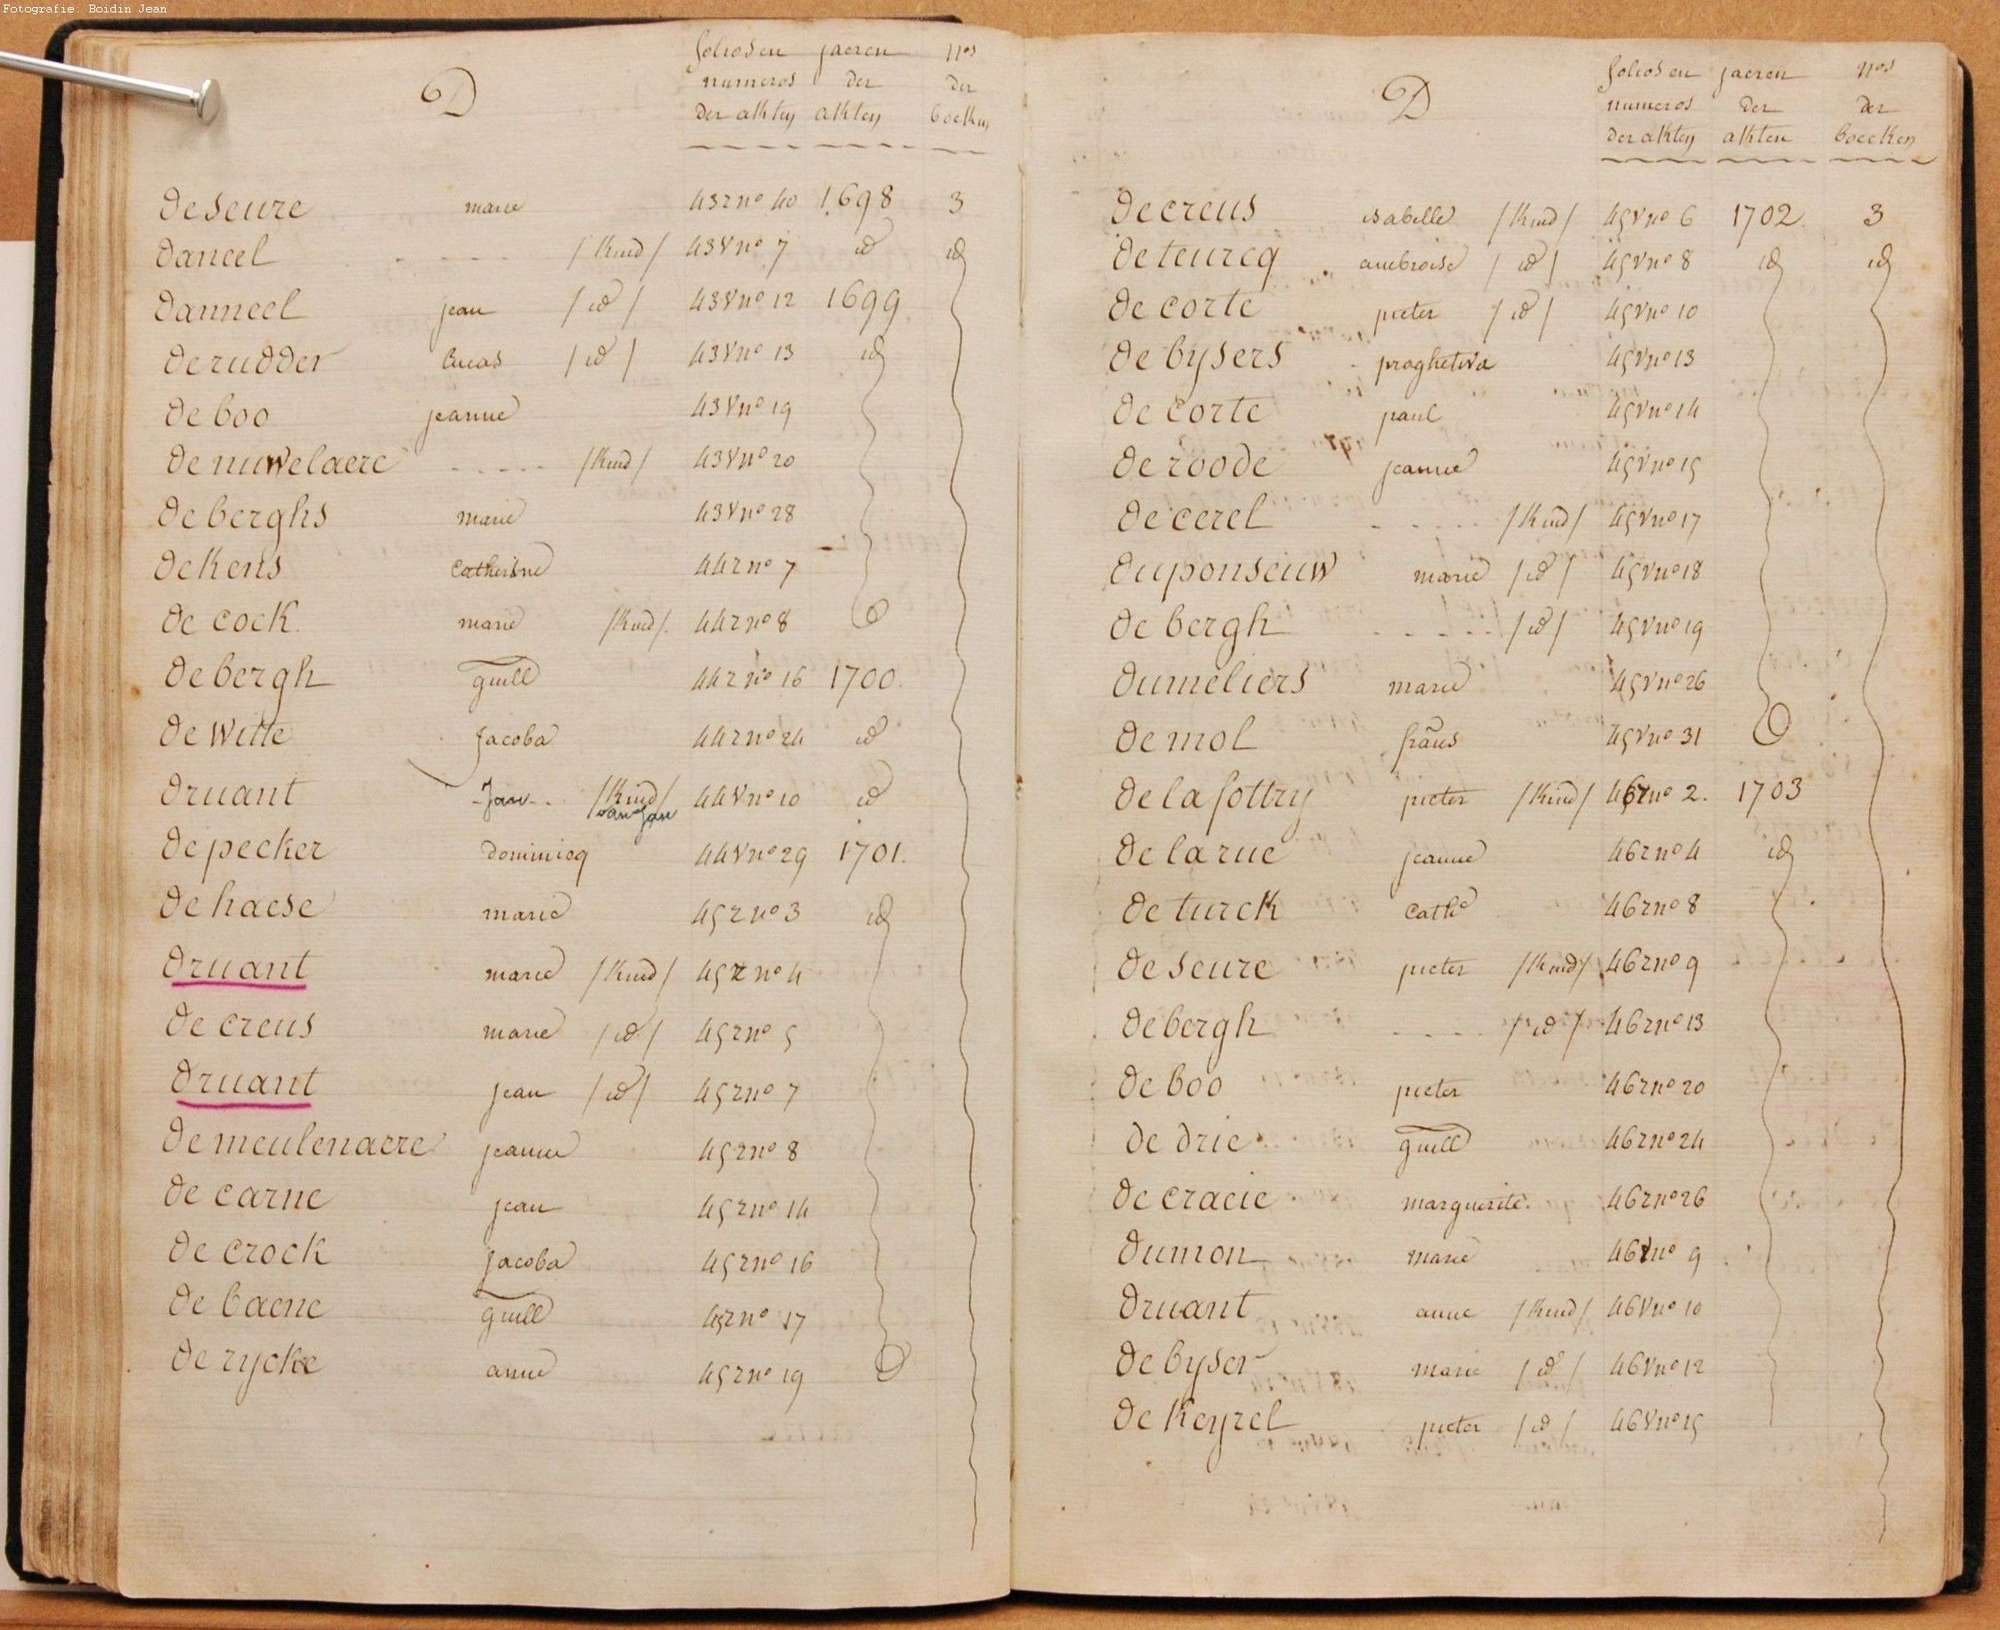 Fotografie: Boidin Jean
D
folios en jaeren nos
numeros der der
der akten akten boeken
deseure marie 43r no 40 1698 3
dancel - - - - - /kind/ 43v no 7 id id
danneel jean /id/ 43v no 12 1699
derudder lucas /id/ 43v no 13 id
deboo jeanne 43v no 19
denuwelaere - - - - - /kind/ 43v no 20
deberghs marie 43v no 28
dekens catherine 44r no 7
de cock. marie /kind/. 44r no 8
debergh guill 44r no 16 1700.
dewitte jacoba 44r no 24 id
druant Jan /kind/ 44v no 10 id
van Jan
depecker dominicq 44v no 29 1701.
dehaese marie 45r no 3 id
druant marie /kind/ 45r no 4
decreus marie /id/ 45r no 5
druant jean /id/ 45r no 7
demeulenaere jeanne 45r no 8
de carne jean 45r no 14
de crock jacoba 45r no 16
debaene guill 45r no 17
derycke anne 45r no 19
D
folios en jaeren nos
numeros der der
der akten akten boecken
decreus isabelle /kind/ 45v no 6 1702. 3
deteurcq ambroise /id/ 45v no 8 id id
de corte pieter /id/ 45v no 10
debysers praghetiva 45v no 13
de corte paul 45v no 14
deroode jeanne 45v no 15
decerel - - - - - /kind/ 45v no 17
duponseuw marie /id/ 45v no 18
debergh - - - - - /id/ 45v no 19
dumeliers marie 45v no 26
demol frans 45v no 31
delafottry pieter /kind/ 46r no 2. 1703
delarue jeanne 46r no 4 id
deturck cathe 46r no 8
deseure pieter /kind/ 46r no 9
debergh - - - - /id/ 46r no 13
deboo pieter 46r no 20
dedrie guill 46r no 24
decracie marguerite. 46r no 26
dumon marie 46v no 9
druant anne /kind/ 46v no 10
debyser marie /id/ 46v no 12
dekeyrel pieter /id/ 46v no 15